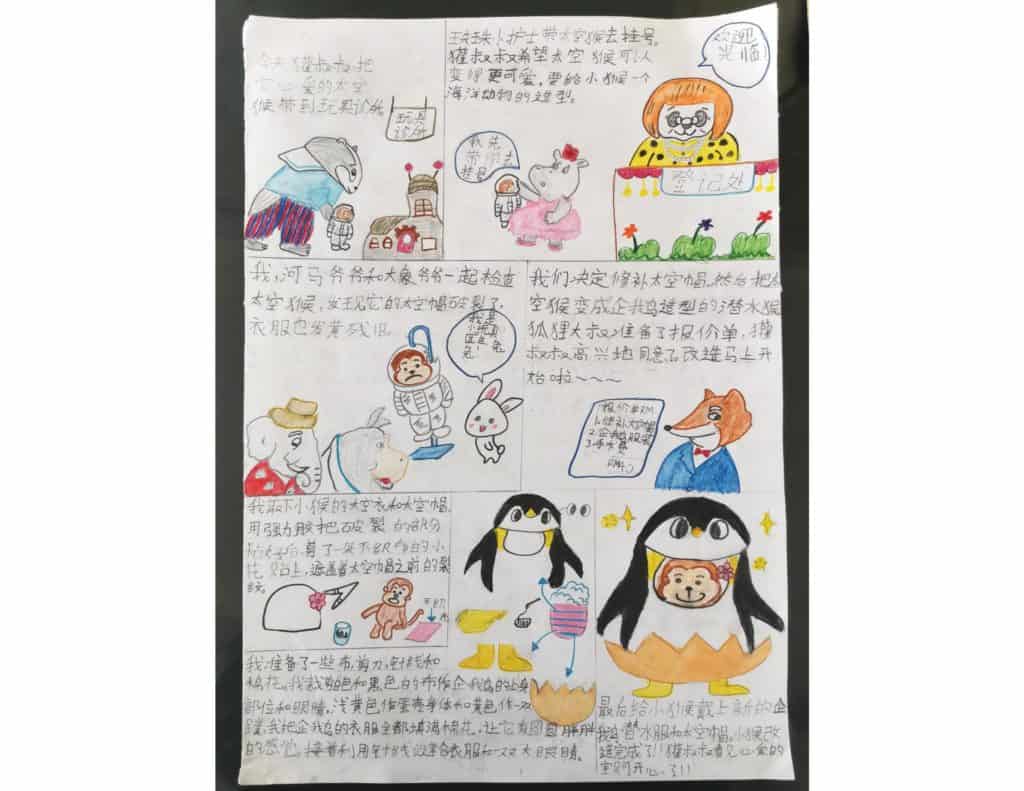 今天獾叔叔把
爱的太空
猴带到玩具诊所。
玩具
诊所
珠卜护士带太空猴去挂号。
獾叔叔希望太空猴可以
变得更可爱，要给小猴一个
海洋动物的造型。
欢迎
光临！
我先
带你去
挂号
登记处
我，河马爷爷和大象爷爷一起检查
太空猴，发现它的太空帽破裂了，
衣服也发黄残旧。
我是
小玩具
医生兔
兔！
我们决定修补太空帽，然后把太
空猴变成企鹅造型的潜水猴
狐狸大叔准备了报价单，獾
叔叔高兴地同意了改造马上开
始啦~~~
报价单
1.修补太空帽
2.企鹅服装
3.手术费
我取下小猴的太空衣和太空帽，
用强力胶把破裂的部分
粘好后，剪了一朵不织布的小
花贴上，遮盖着太空帽之前的裂
纹。
不织
布
我准备了一些布，剪刀，针线和
棉花。我裁剪白和黑色的布作企鹅的上身
部位和眼睛。浅黄色作蛋壳身体和黄色作一双
腿。我把企鹅的衣服全都填满棉花，让它有圆圆胖胖
的感觉。接着利用针线缝合衣服和一双大眼睛。
最后给小猴戴上新的企
鹅潜水服和太空帽。小猴改
造完成了！獾叔叔看见心爱的
开心了！！